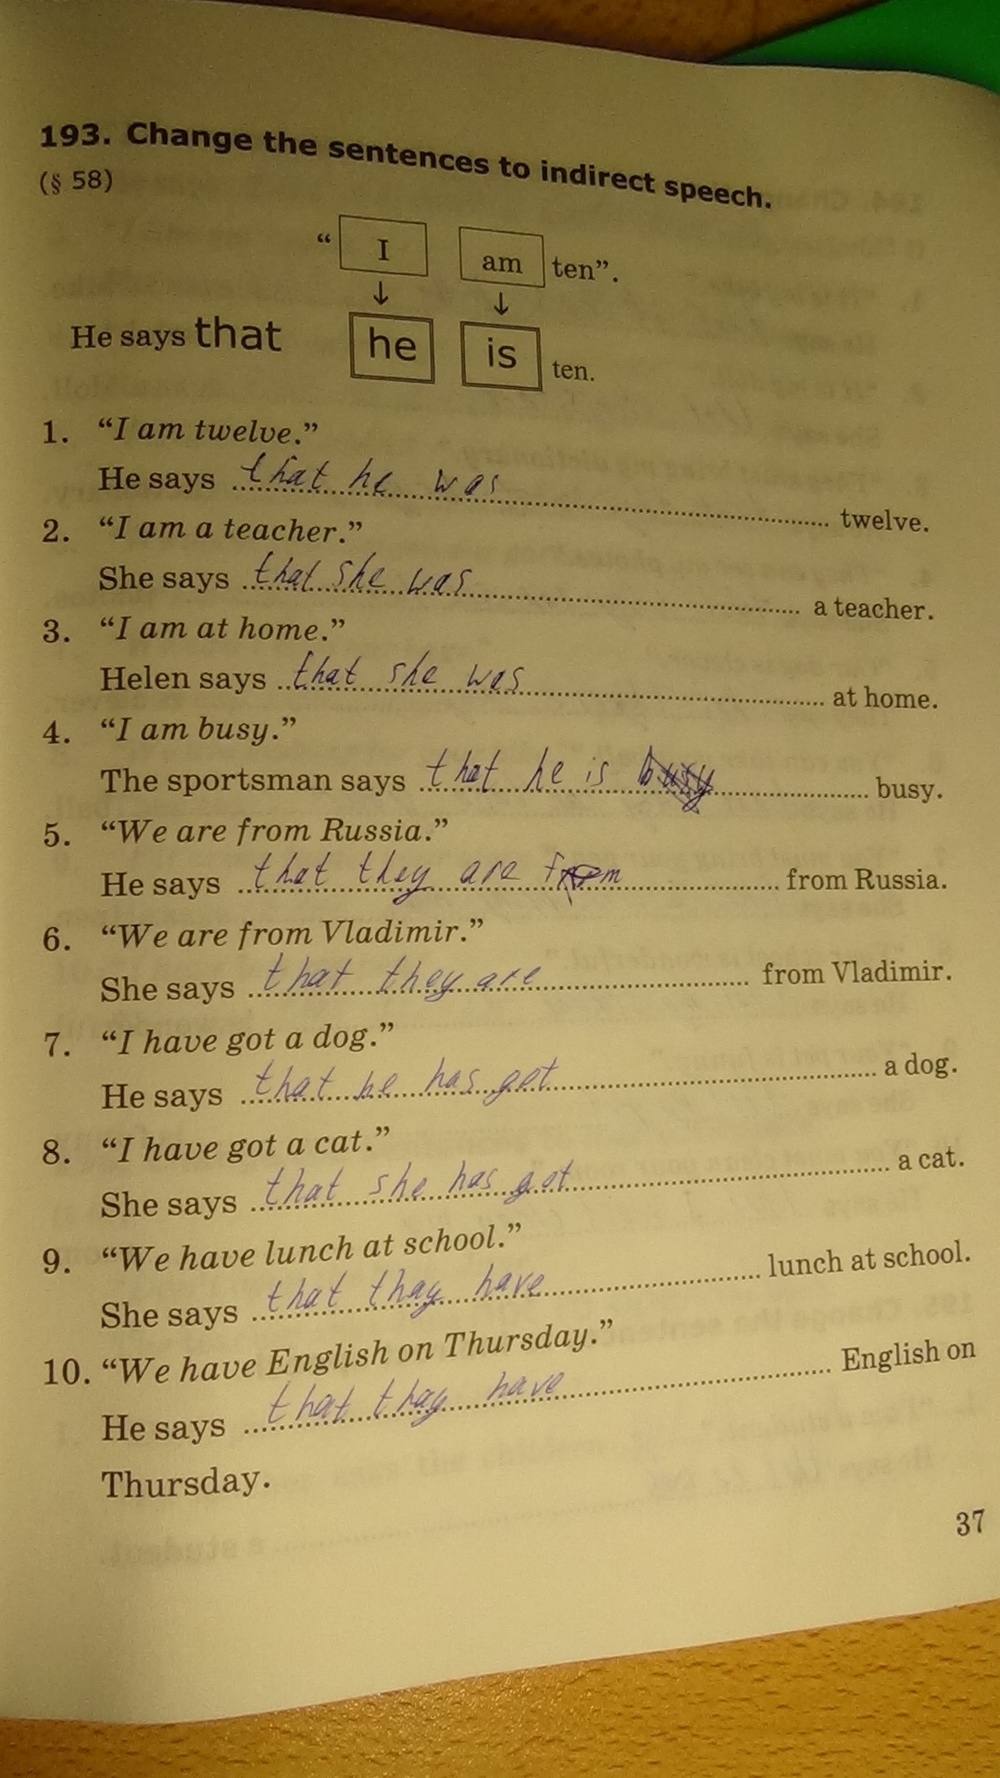 193. Change the sentences to indirect speech.
(§ 58)
“ I am ten”.
↓ ↓
He says that he is ten.
1. “I am twelve.”
He says that he was twelve.
2. “I am a teacher.”
She says that she was a teacher.
3. “I am at home.”
Helen says that she was at home.
4. “I am busy.”
The sportsman says that he is busy busy.
5. “We are from Russia.”
He says that they are from from Russia.
6. “We are from Vladimir.”
She says that they are from Vladimir.
7. “I have got a dog.”
He says that he has got a dog.
8. “I have got a cat.”
She says that she has got a cat.
9. “We have lunch at school.”
She says that thay have lunch at school.
10. “We have English on Thursday.”
He says that thay have English on
Thursday.
37